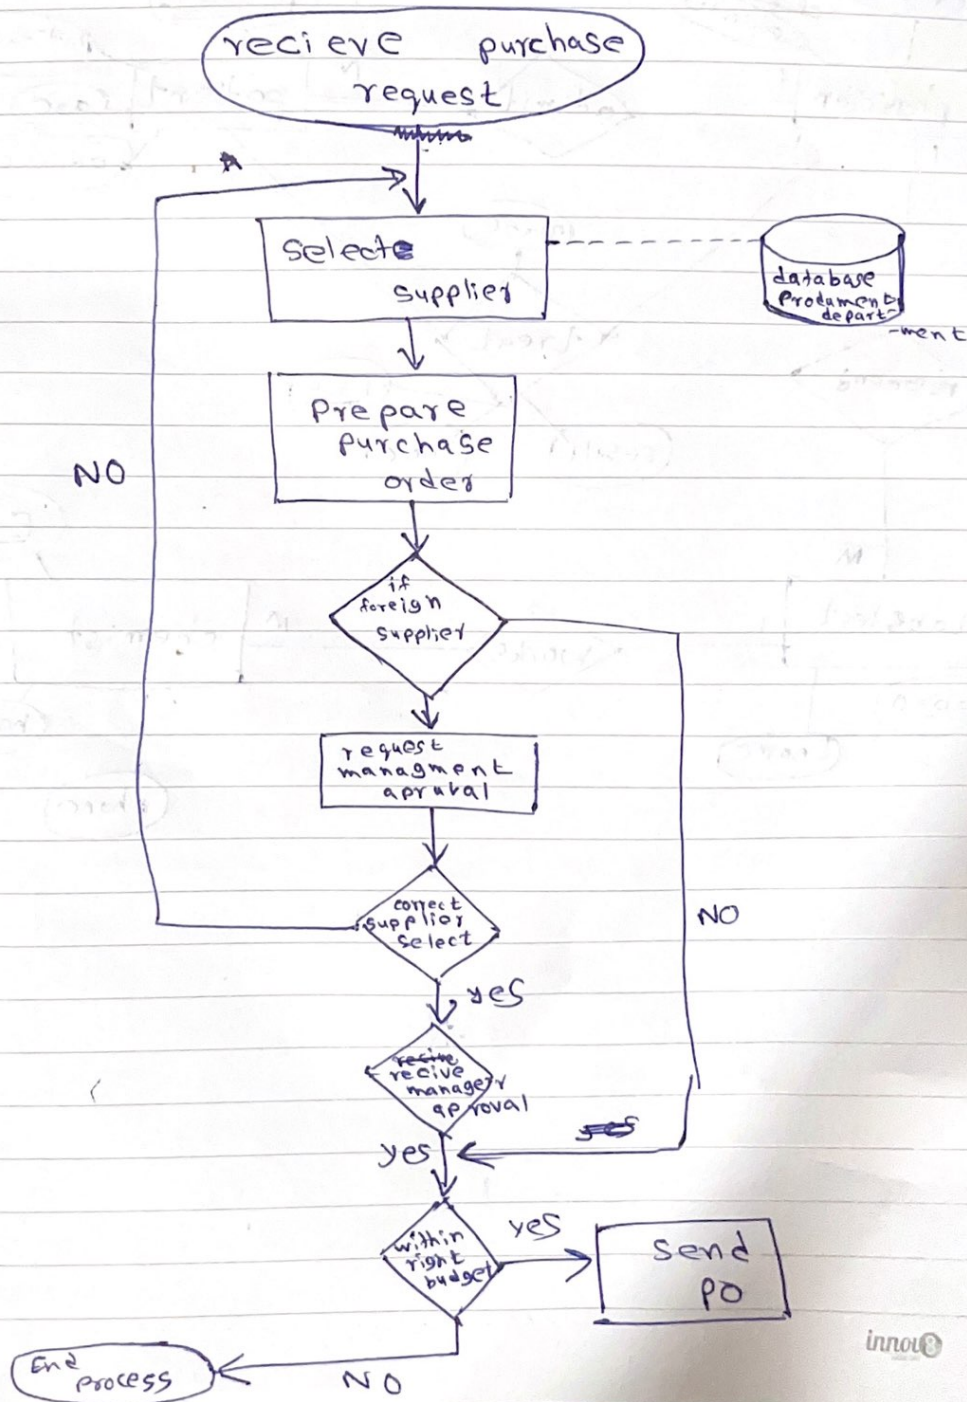 recieve purchase
request
Select
supplier
database
Produment
depart-
-ment
Prepare
purchase
order
NO
if
foreign
supplier
request
managment
apruval
correct
supplier
select
NO
yes
recive
manager
aproval
yes
within
right
budget
yes
Send
PO
End
process
NO
innov8